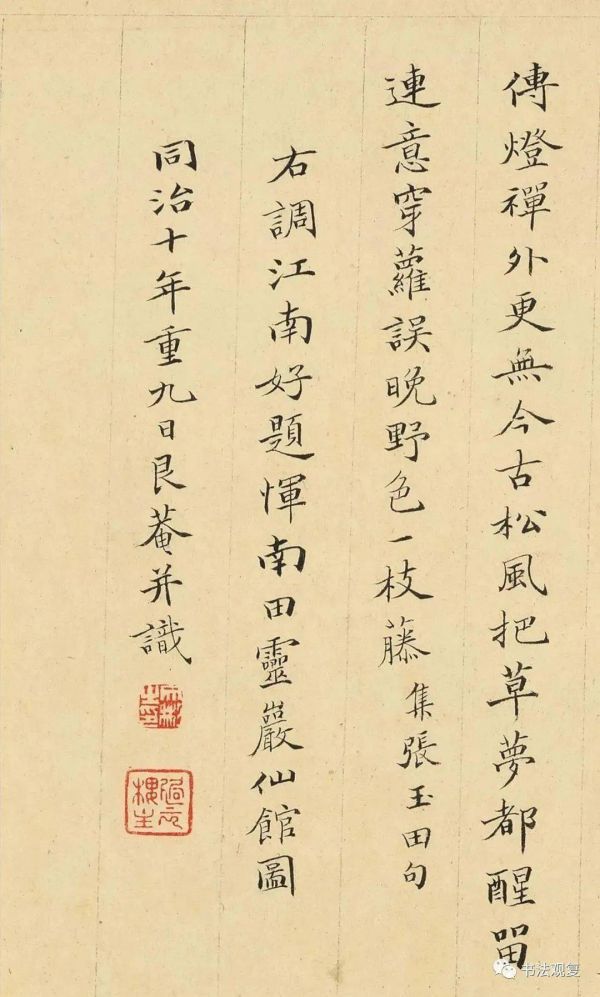 傳燈禪外更無今古松風把草夢都醒畱
連意穿蘿誤晚野色一枝藤集張玉田句
右調江南好題惲南田靈巖仙館圖
同治十年重九日艮菴并識
過雲樓主
书法观复